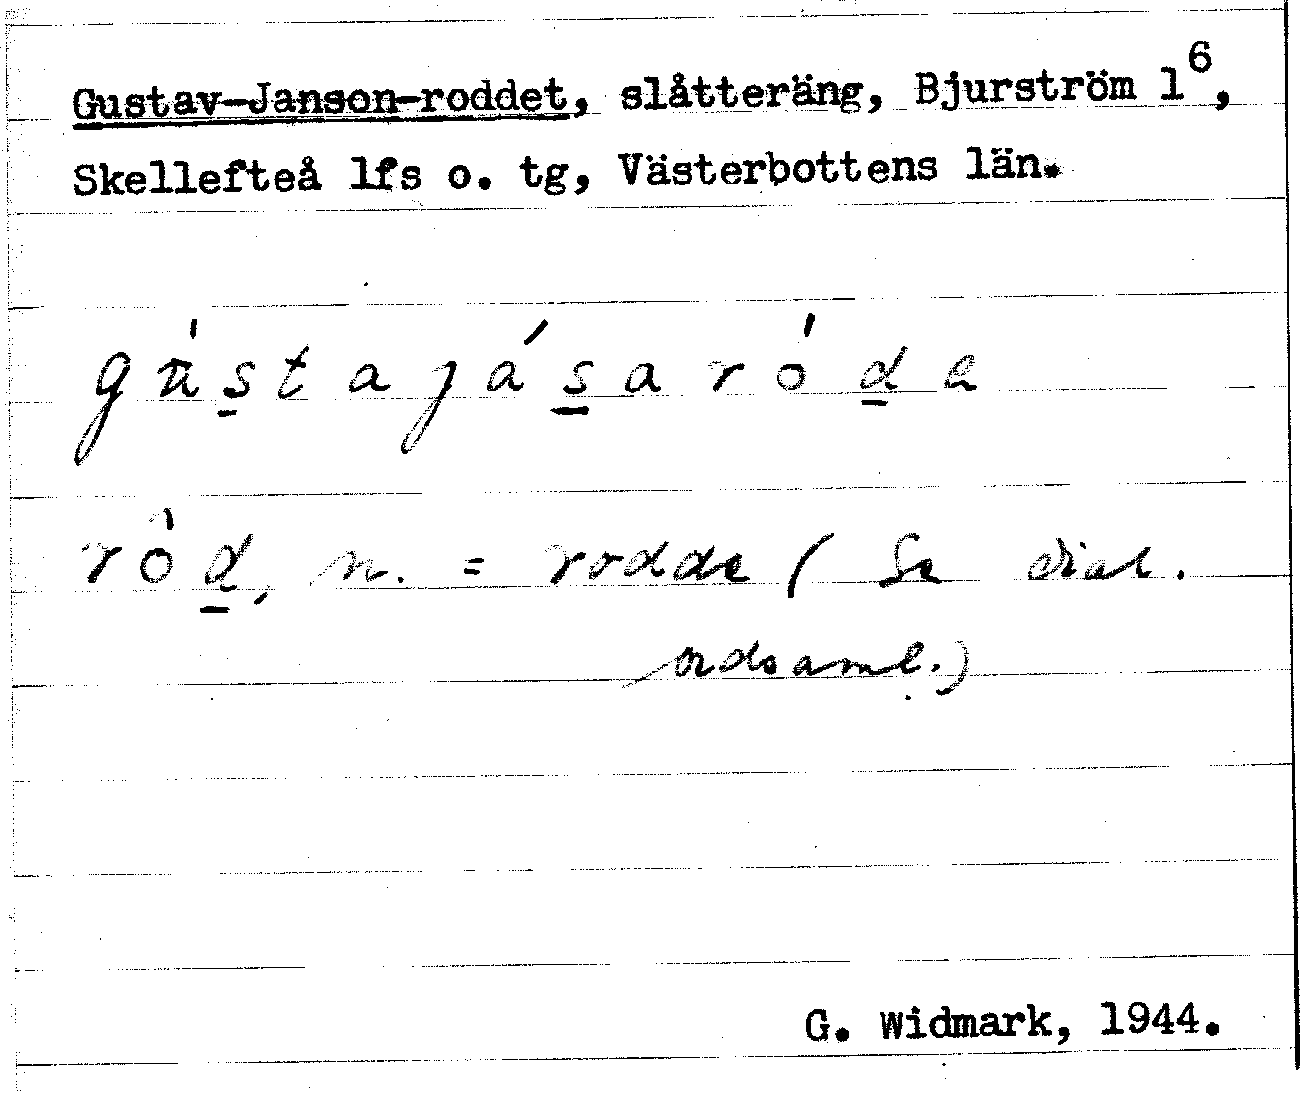 Gustav-Janson-roddet, slåtteräng, Bjurström 1⁶,
Skellefteå lfs o. tg, Västerbottens län.
gu̇s̱tajás̱aróḏa
ròḏ, n. = rodde (Se dial.
ordsaml.)
G. Widmark, 1944.